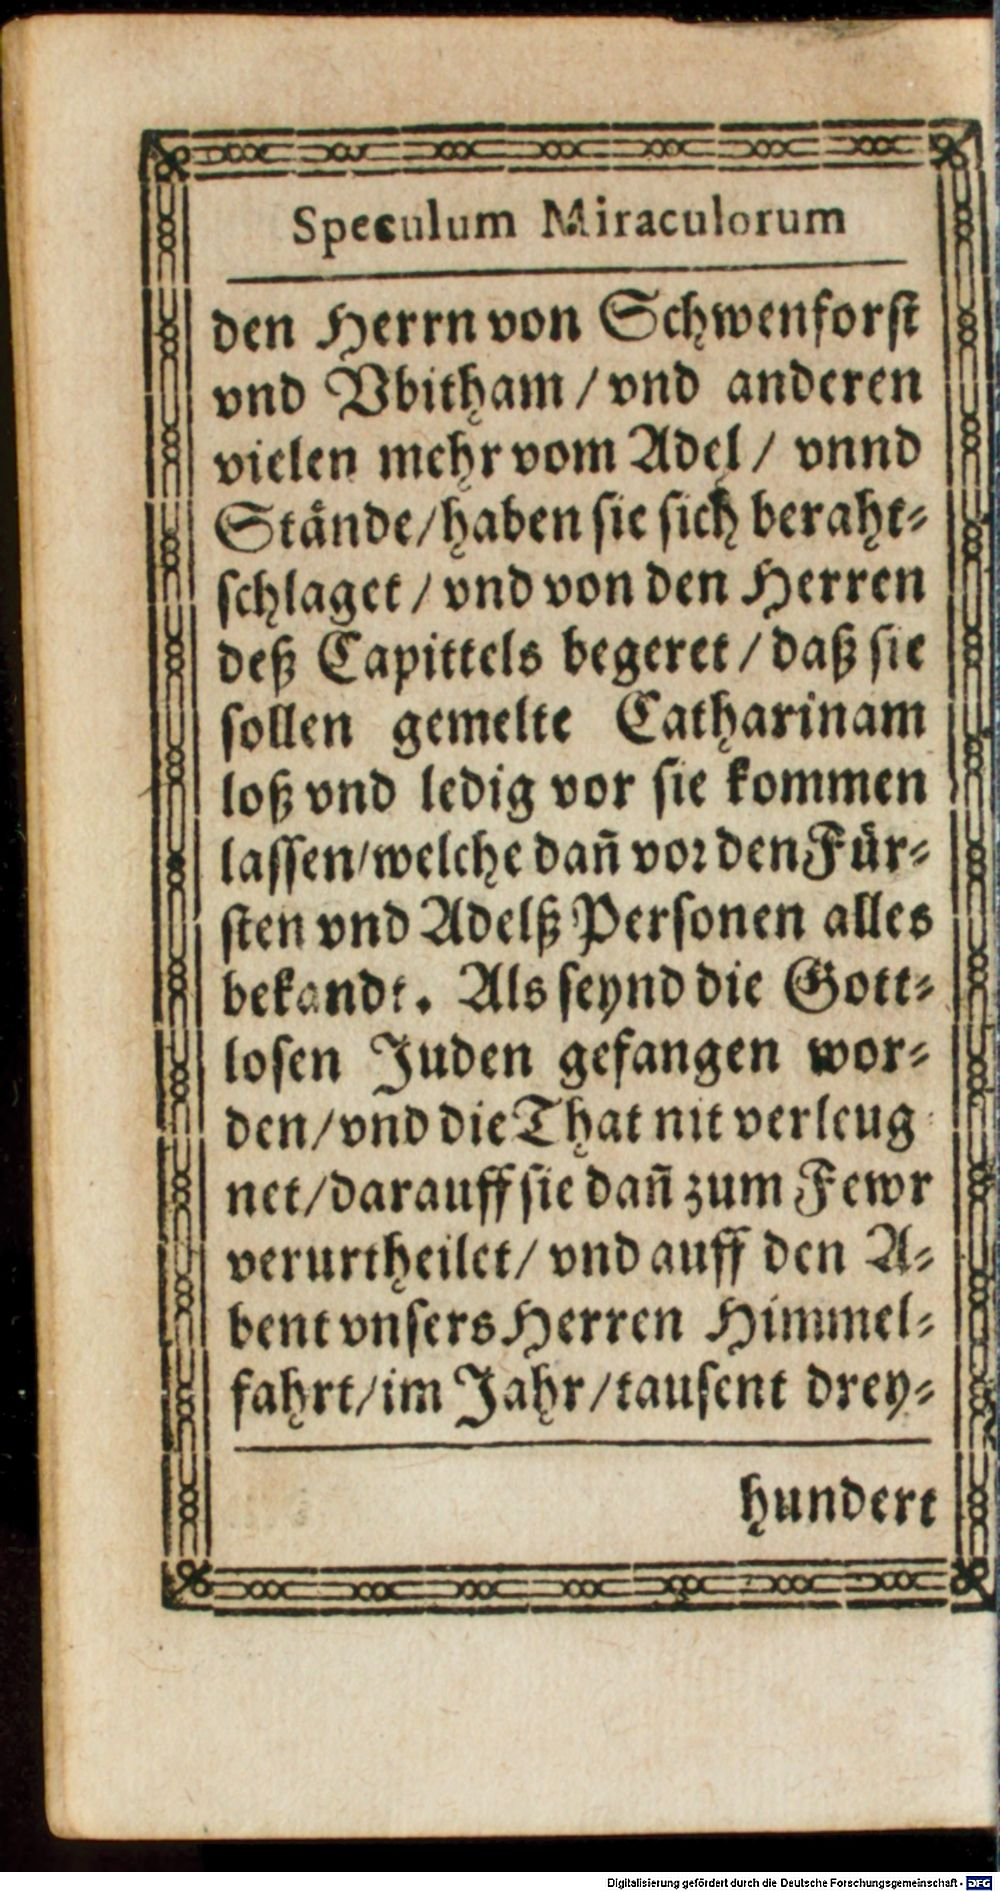 Speculum Miraculorum
den Herrn von Schwenforst
vnd Vbitham / vnd anderen
vielen mehr vom Adel / vnnd
Stände / haben sie sich beraht⸗
schlaget / vnd von den Herren
deß Capittels begeret / daß sie
sollen gemelte Catharinam
loß vnd ledig vor sie kommen
lassen / welche dan̄ vor den Für⸗
sten vnd Adelß Personen alles
bekandt. Als seynd die Gott⸗
losen Juden gefangen wor⸗
den / vnd die That nit verleug
net / darauff sie dan̄ zum Fewr
verurtheilet / vnd auff den A⸗
bent vnsers Herren Himmel⸗
fahrt / im Jahr / tausent drey⸗
hundert
Digitalisierung gefördert durch die Deutsche Forschungsgemeinschaft - DFG